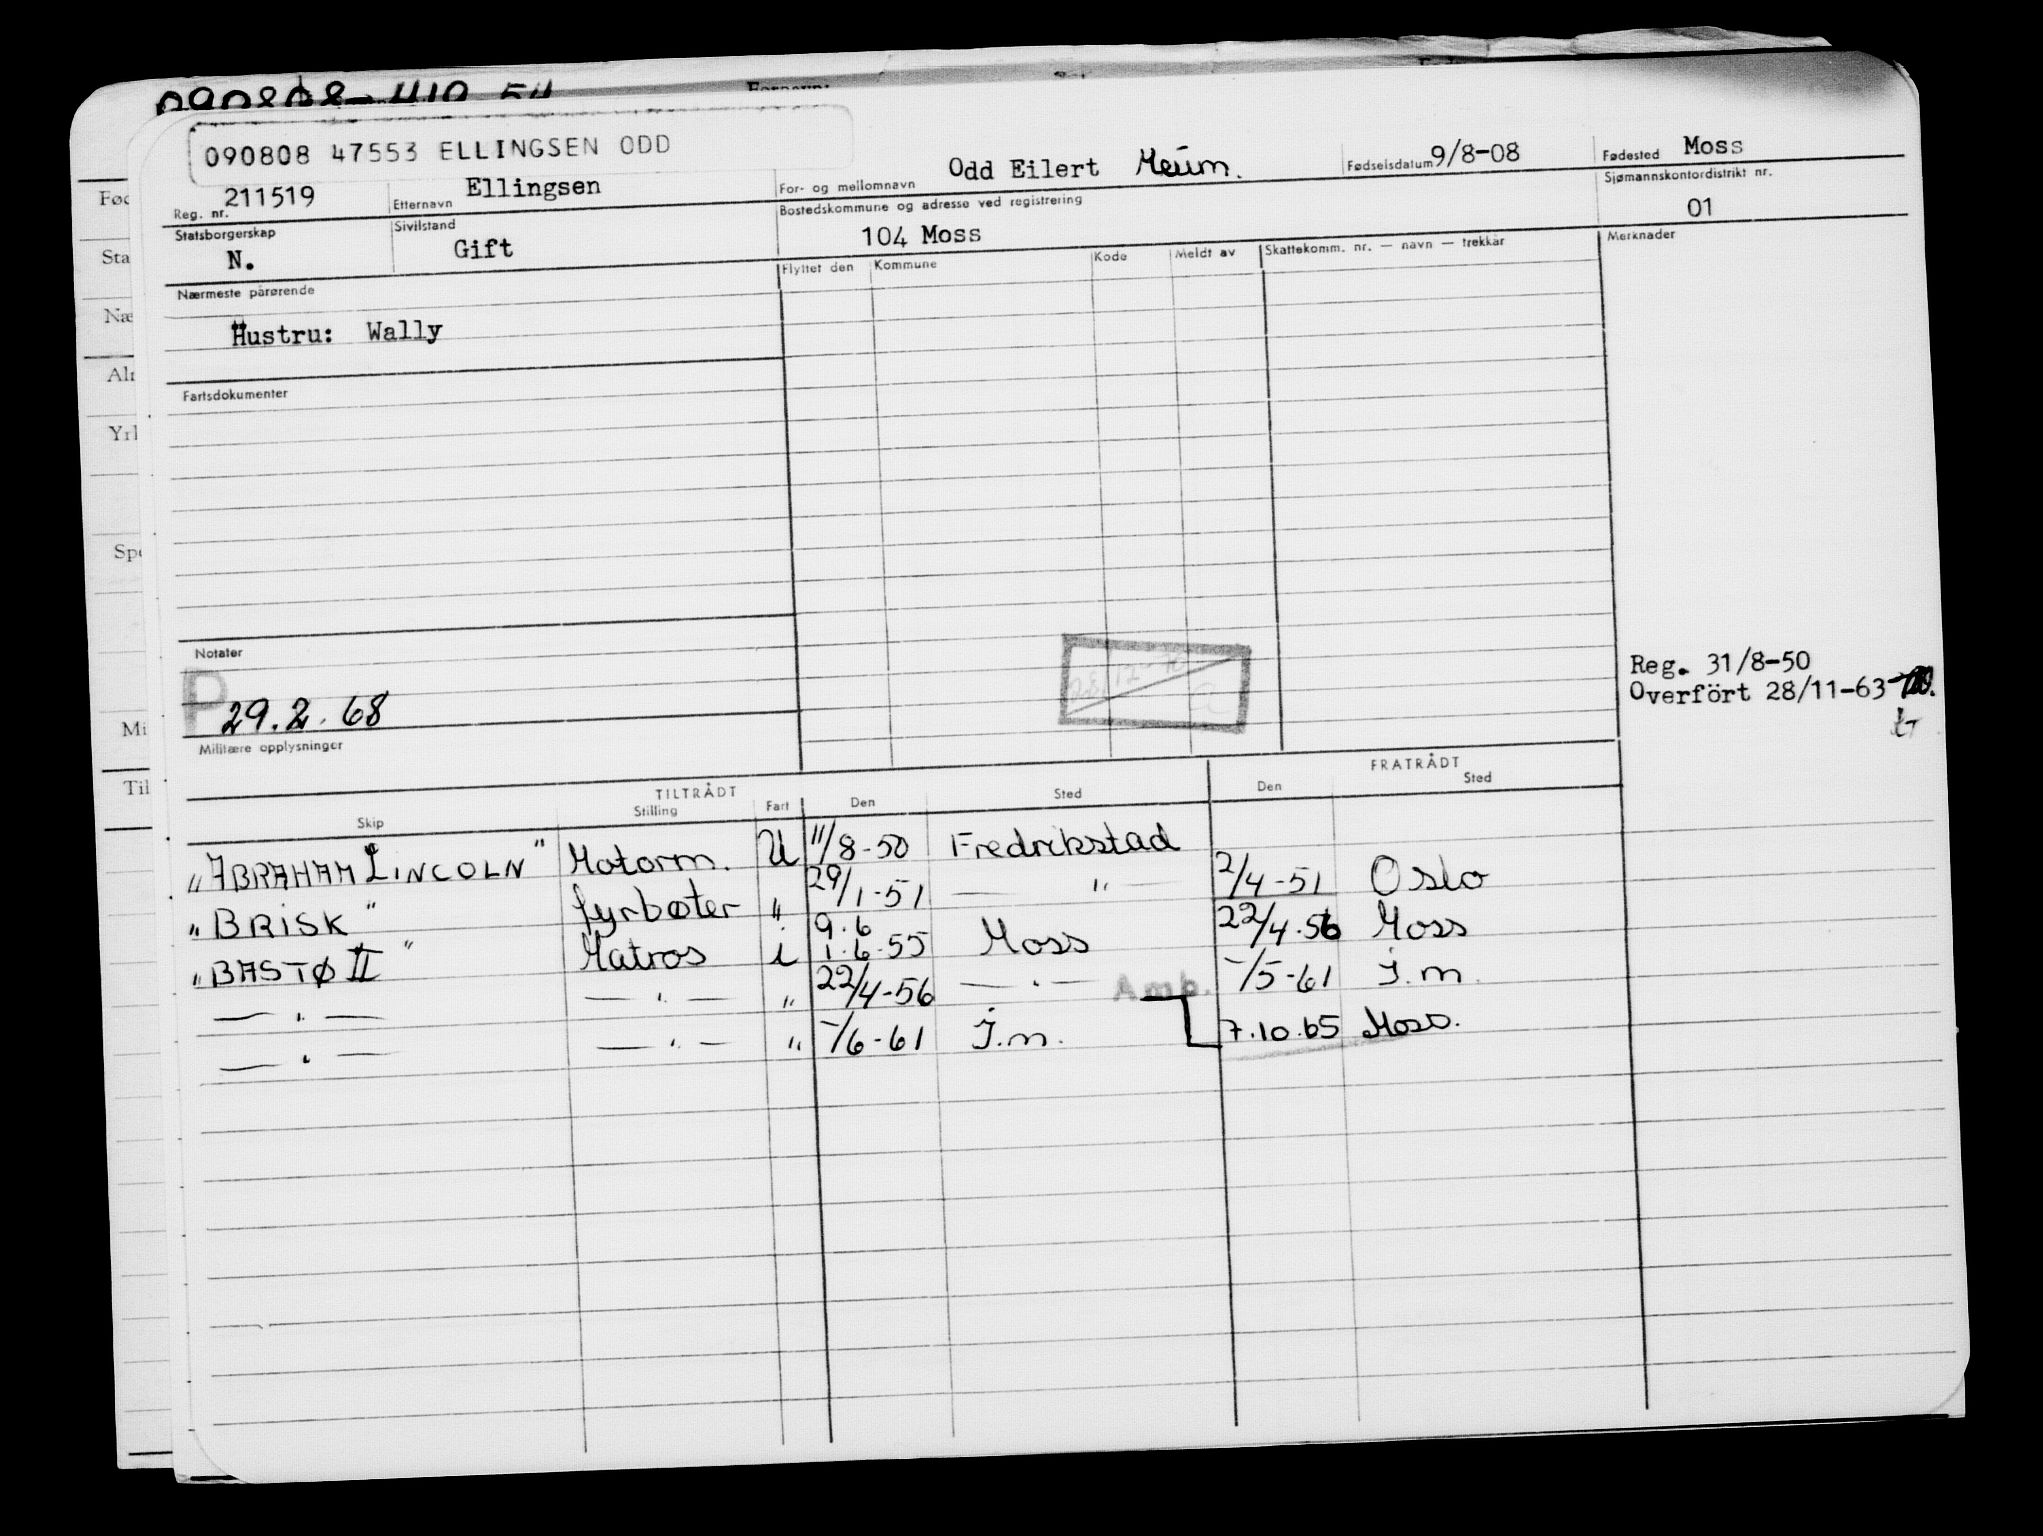 090808 47553 ELLINGSEN ODD
Reg. nr. 211519 Etternavn Ellingsen For- og mellomnavn Odd Eilert Fødselsdatum 9/8-08 Fødested Moss
Statsborgerskap N. Sivilstand Gift Bostedskommune og adresse ved registrering 104 Moss Sjømannskontordistrikt nr. 01
Nærmeste pårørende Flyttet den Kommune Kode Meldt av Skattekomm. nr. — navn — trekkår Merknader
Hustru: Wally
Fartsdokumenter
Notater
P 29.2.68
Reg. 31/8-50
Overført 28/11-63
Militære opplysninger
TILTRÅDT FRATRÅDT
Skip Stilling Fart Den Sted Den Sted
"ABRAHAM LINCOLN" Motorm. U 11/8-50 Fredrikstad
"BRISK" fyrbøter " 29/1-51 — " — 2/4-51 Oslo
9.6
"BASTØ II" Matros i 1.6-55 Moss 22/4-56 Moss
— " — — " — " 22/4-56 — " — Amb. -/5-61 I.m.
— " — — " — " -/6-61 I.m. 7.10.65 Moss.